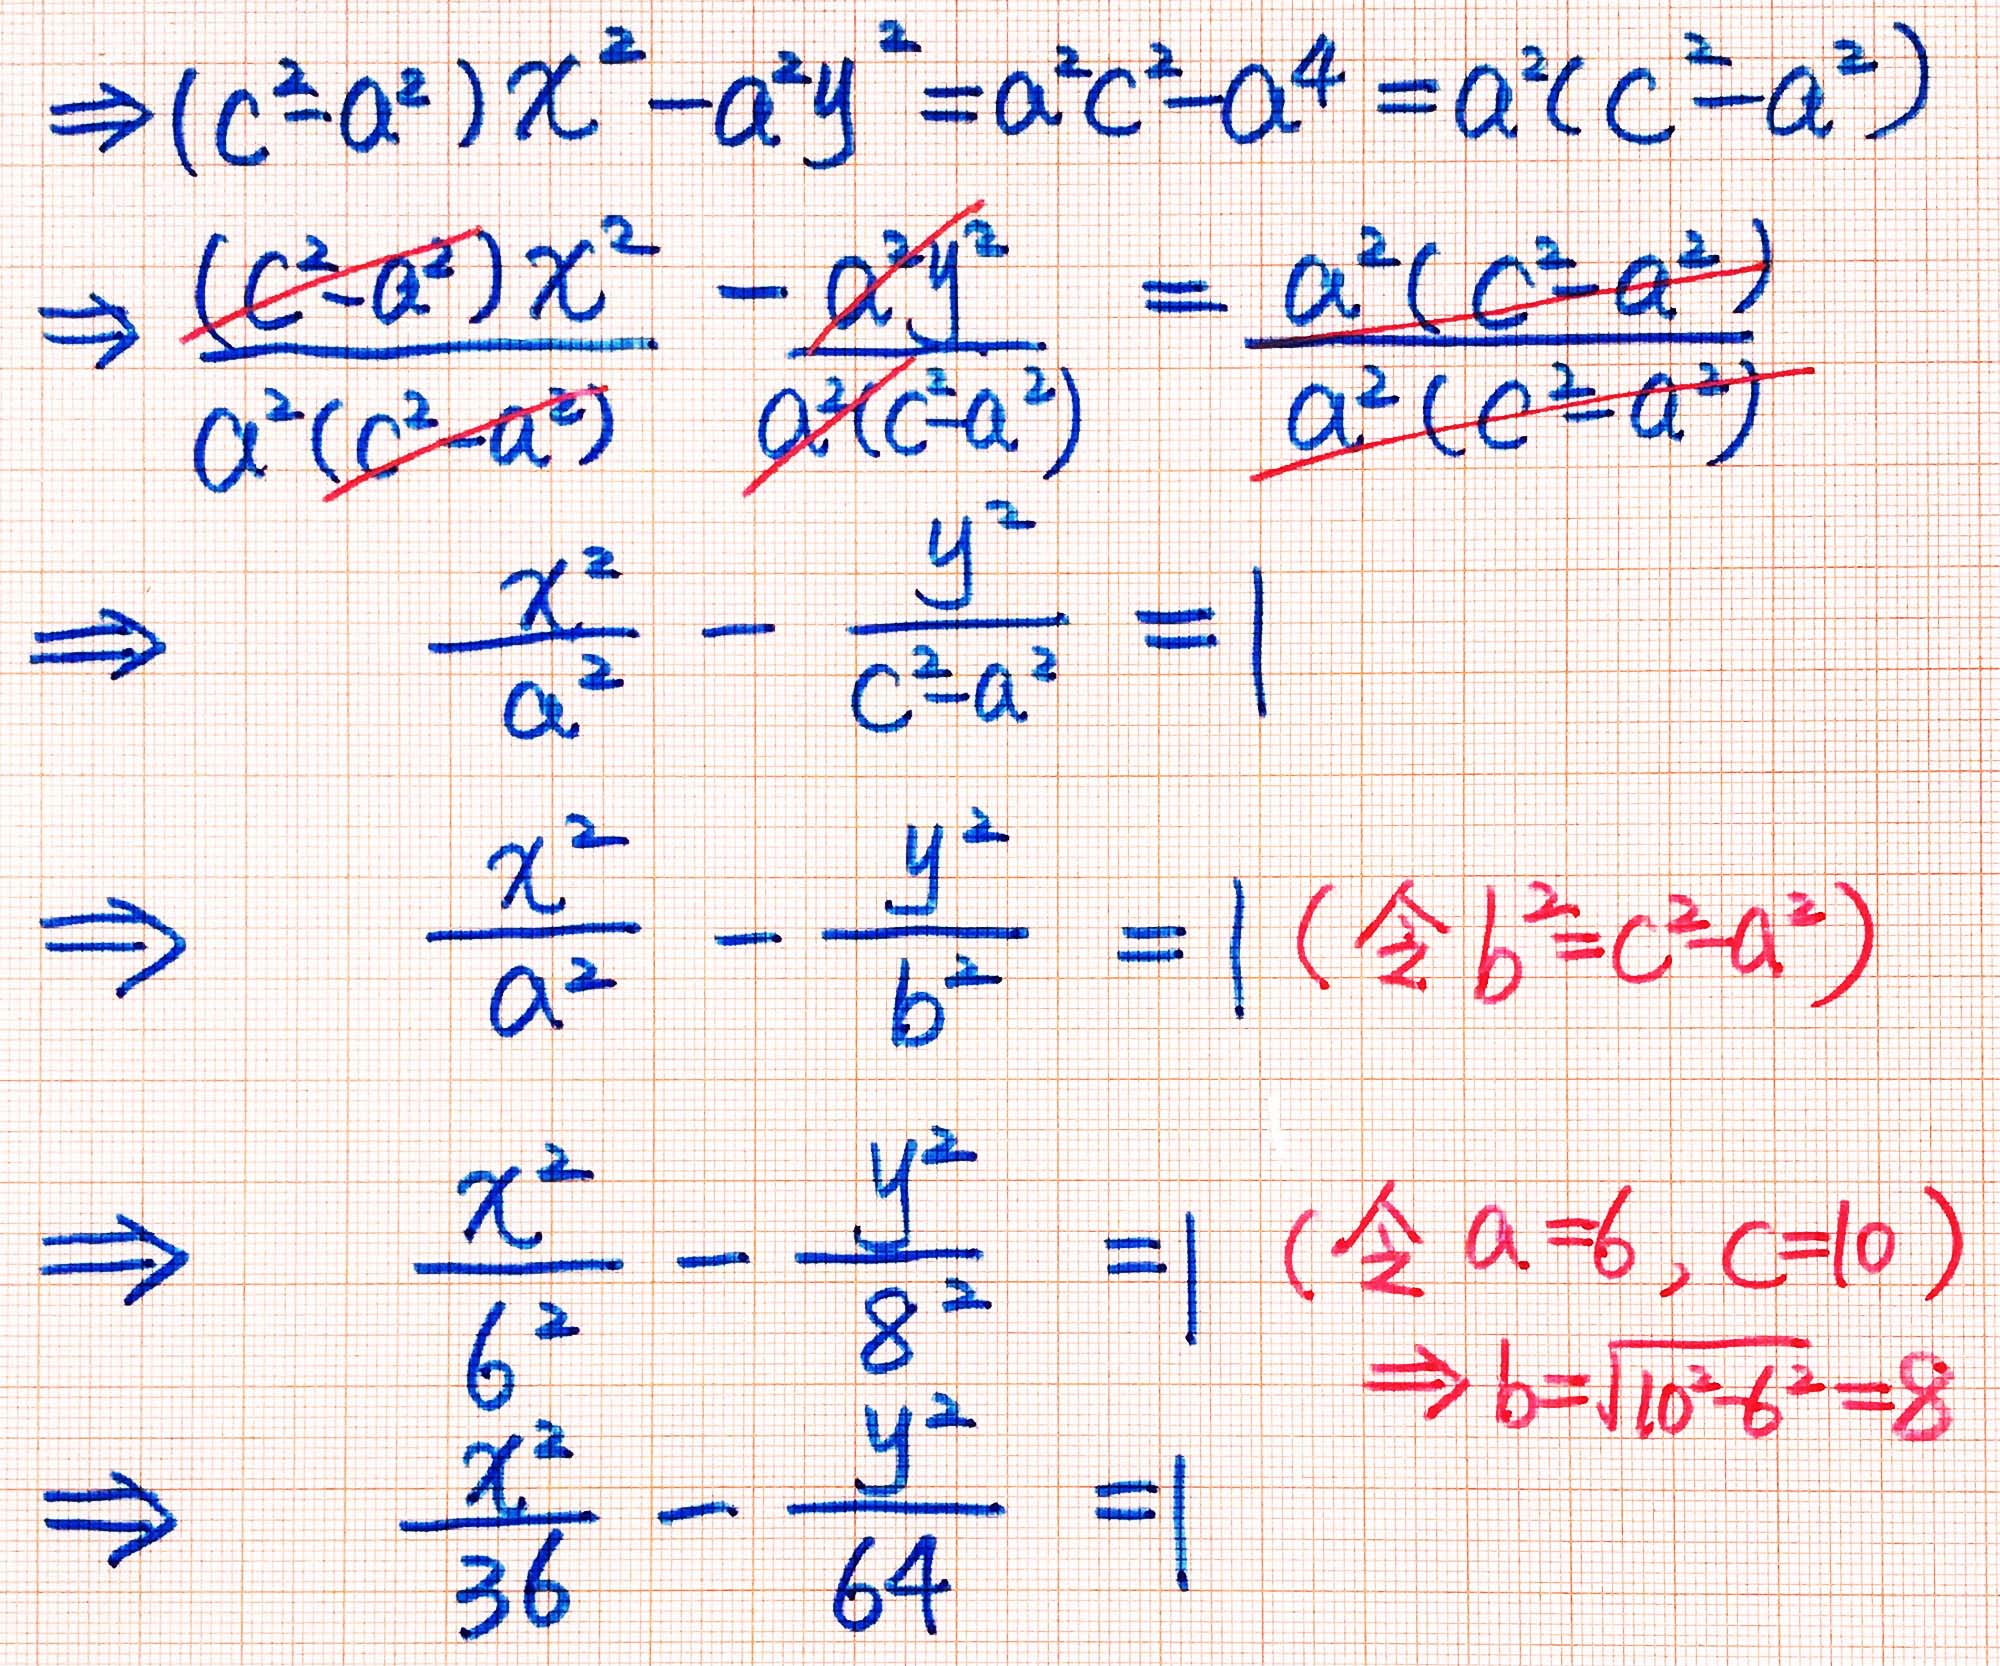 ⇒(c²-a²)x²-a²y²=a²c²-a⁴=a²(c²-a²)
⇒ (c²-a²)x²/a²(c²-a²) - a²y²/a²(c²-a²) = a²(c²-a²)/a²(c²-a²)
⇒ x²/a² - y²/c²-a² = 1
⇒ x²/a² - y²/b² = 1 (令b²=c²-a²)
⇒ x²/6² - y²/8² = 1 (令a=6, c=10)
⇒b=√10²-6²=8
⇒ x²/36 - y²/64 = 1